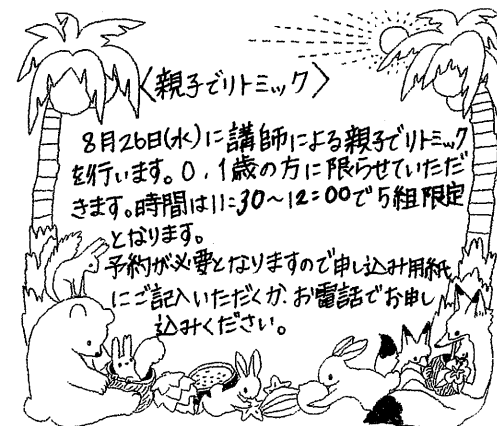 〈親子でリトミック〉
8月26日(水)に講師による親子でリトミック
を行います。0,1歳の方に限らせていただ
きます。時間は11:30～12:00で5組限定
となります。
予約が必要となりますので申し込み用紙
にご記入いただくか、お電話でお申し
込みください。